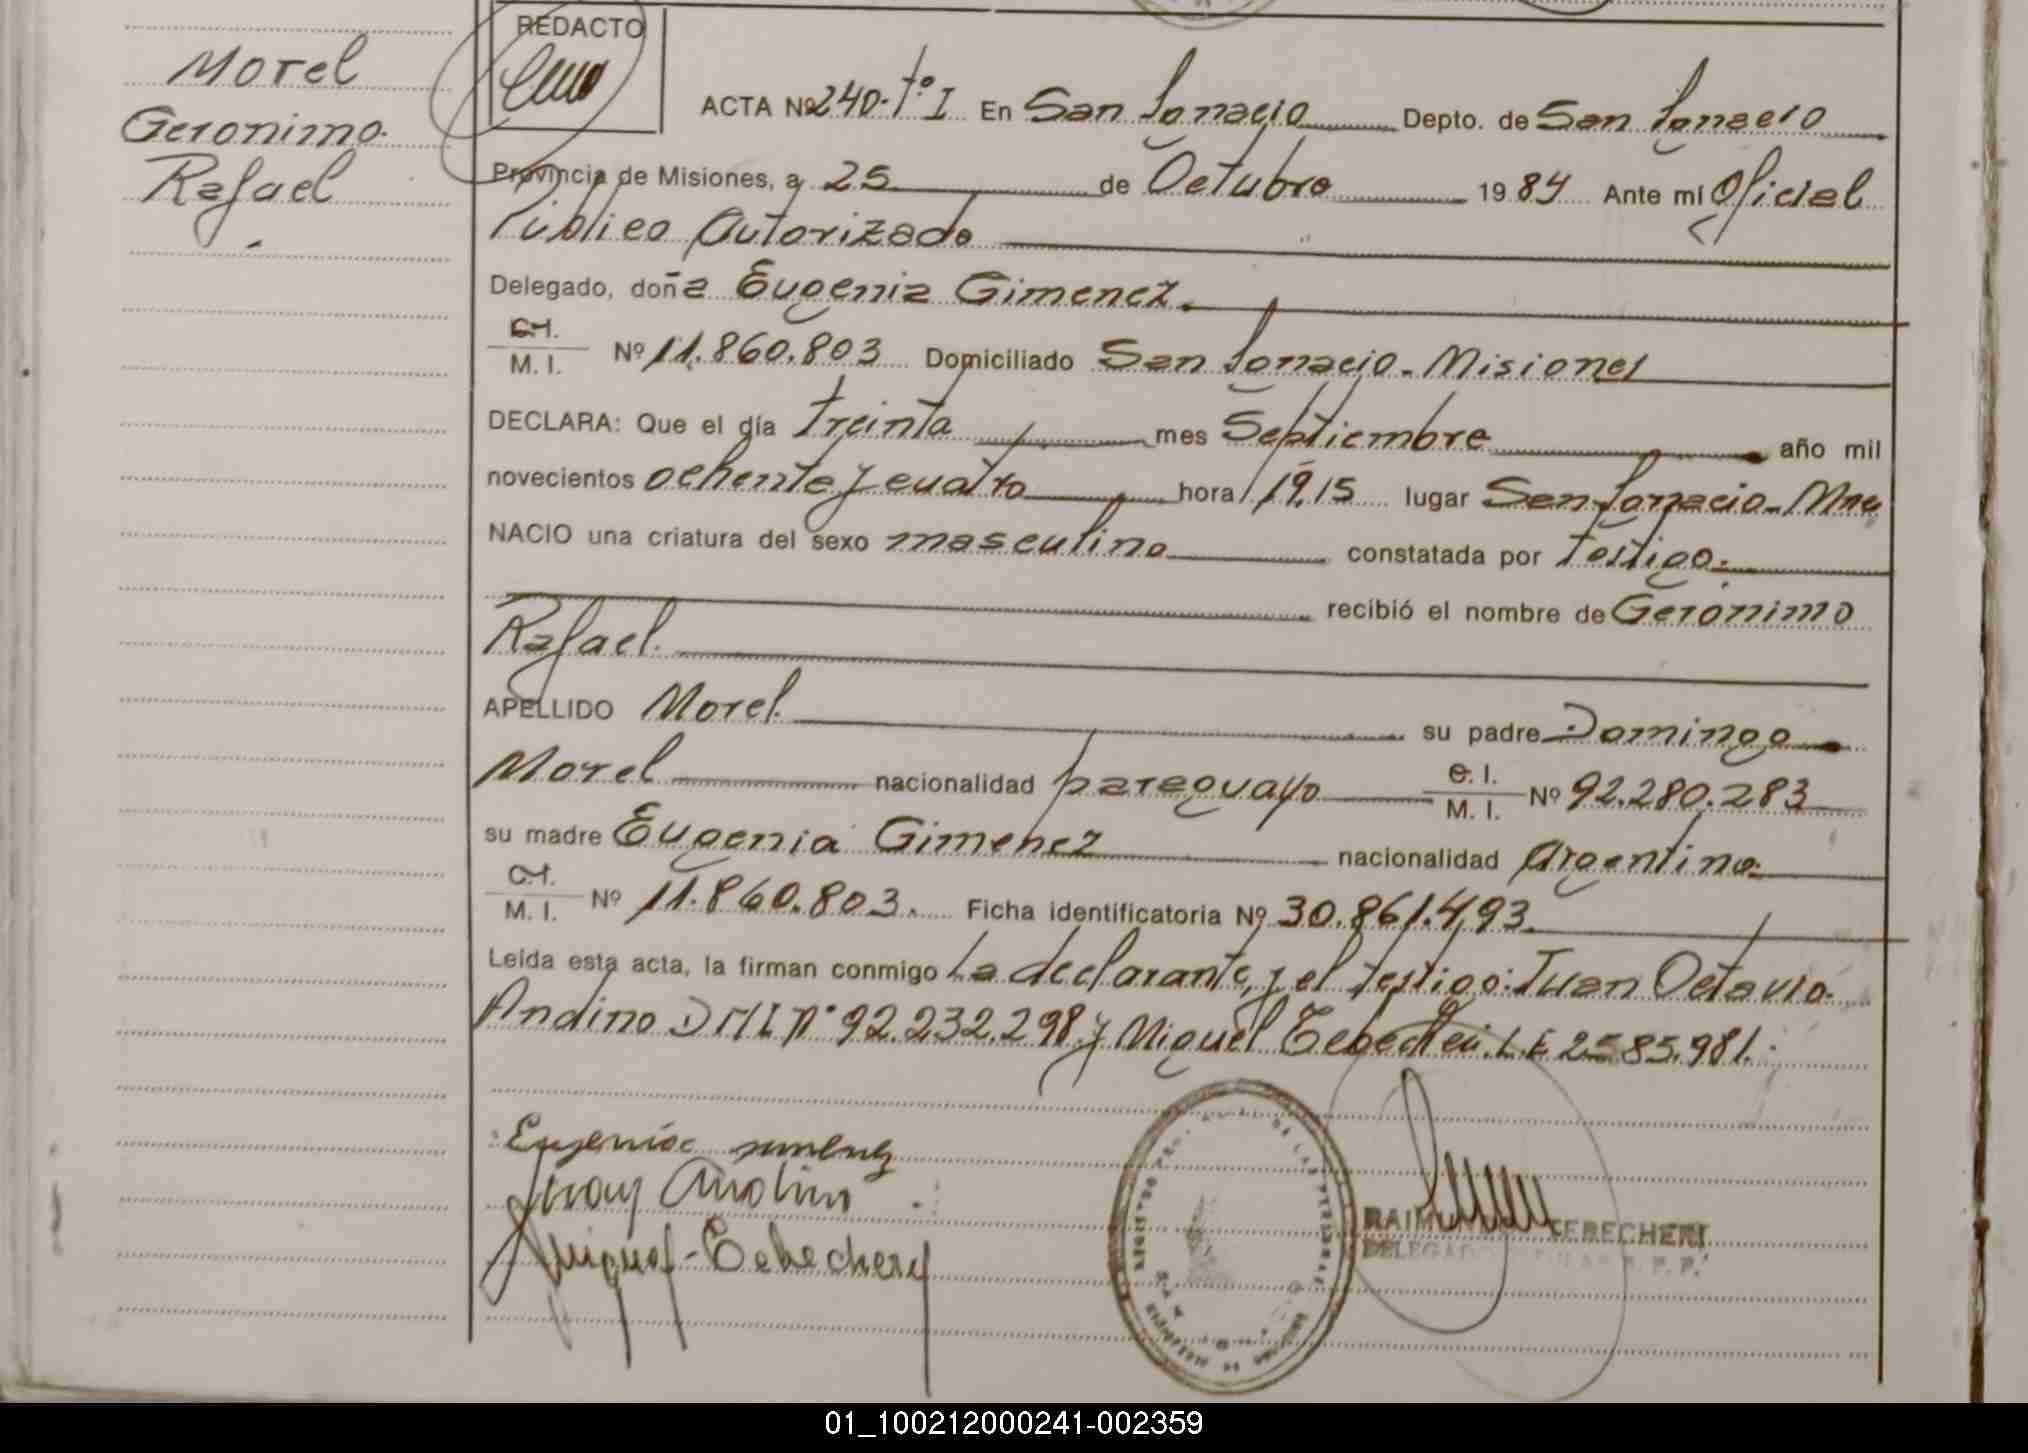 Morel
Geronimo
Rafael
REDACTO
ACTA Nº 240-tº I En San Ignacio Depto. de San Ignacio
Provincia de Misiones, a 25 de Octubre 1984 Ante mí Oficial
Público Autorizado
Delegado, doña Eugenia Gimenez
C.I.
M. I. Nº 11.860.803 Domiciliado San Ignacio - Misiones
DECLARA: Que el día treinta mes Septiembre año mil
novecientos ochenta y cuatro hora 19,15 lugar San Ignacio - Mnes
NACIO una criatura del sexo masculino constatada por testigo.
recibió el nombre de Gerónimo
Rafael.
APELLIDO Morel. su padre Domingo
Morel nacionalidad paraguayo C. I.
M. I. Nº 92.280.283
su madre Eugenia Gimenez nacionalidad Argentina
C.I.
M. I. Nº 11.860.803. Ficha identificatoria Nº 30.861.493.
Leída esta acta, la firman conmigo la declarante, y el testigo: Juan Octavio
Andino DNI Nº 92.232.298 y Miguel Tebecheri. L.E 2585.981.
Eugenia Jimenez
Juan Andino
Miguel Tebechery
TEBECHERI
DELEGADO
01_100212000241-002359